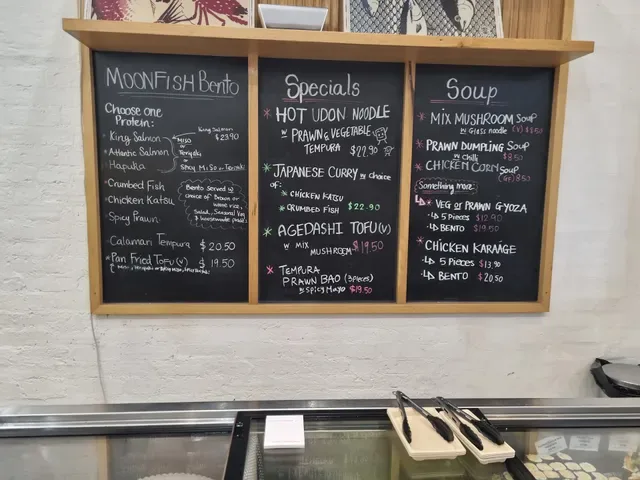 MOONFISH Bento
Choose one
Protein:
King Salmon
$23.90
King Salmon
Atlantic Salmon
Hapuka
MISO
or
Teriyaki
or
Spicy Miso or Teriyaki
Crumbed Fish
Chicken Katsu
Spicy Prawn
Bento served w
choice of Brown or
white rice,
Salad, Seasonal Veg
& housemade pickles
Calamari Tempura $20.50
*Pan Fried Tofu (v) $19.50
Specials
* HOT UDON NOODLE
w PRAWN & VEGETABLE
TEMPURA $22.90
* JAPANESE CURRY w choice
of:
* CHICKEN KATSU
* CRUMBED FISH $22.90
* AGEDASHI TOFU (v)
w MIX
MUSHROOM $19.50
* TEMPURA
PRAWN BAO (3pieces)
w SPICY MAYO $19.50
Soup
* MIX MUSHROOM Soup
w Glass noodle (V) $8.50
* PRAWN DUMPLING Soup
w chilli $8.50
* CHICKEN CORN Soup
(GF) 8.50
Something more:
* VEG or PRAWN GYOZA
5 Pieces $12.90
BENTO $19.50
* CHICKEN KARAAGE
5 PIECES $13.90
BENTO $20.50